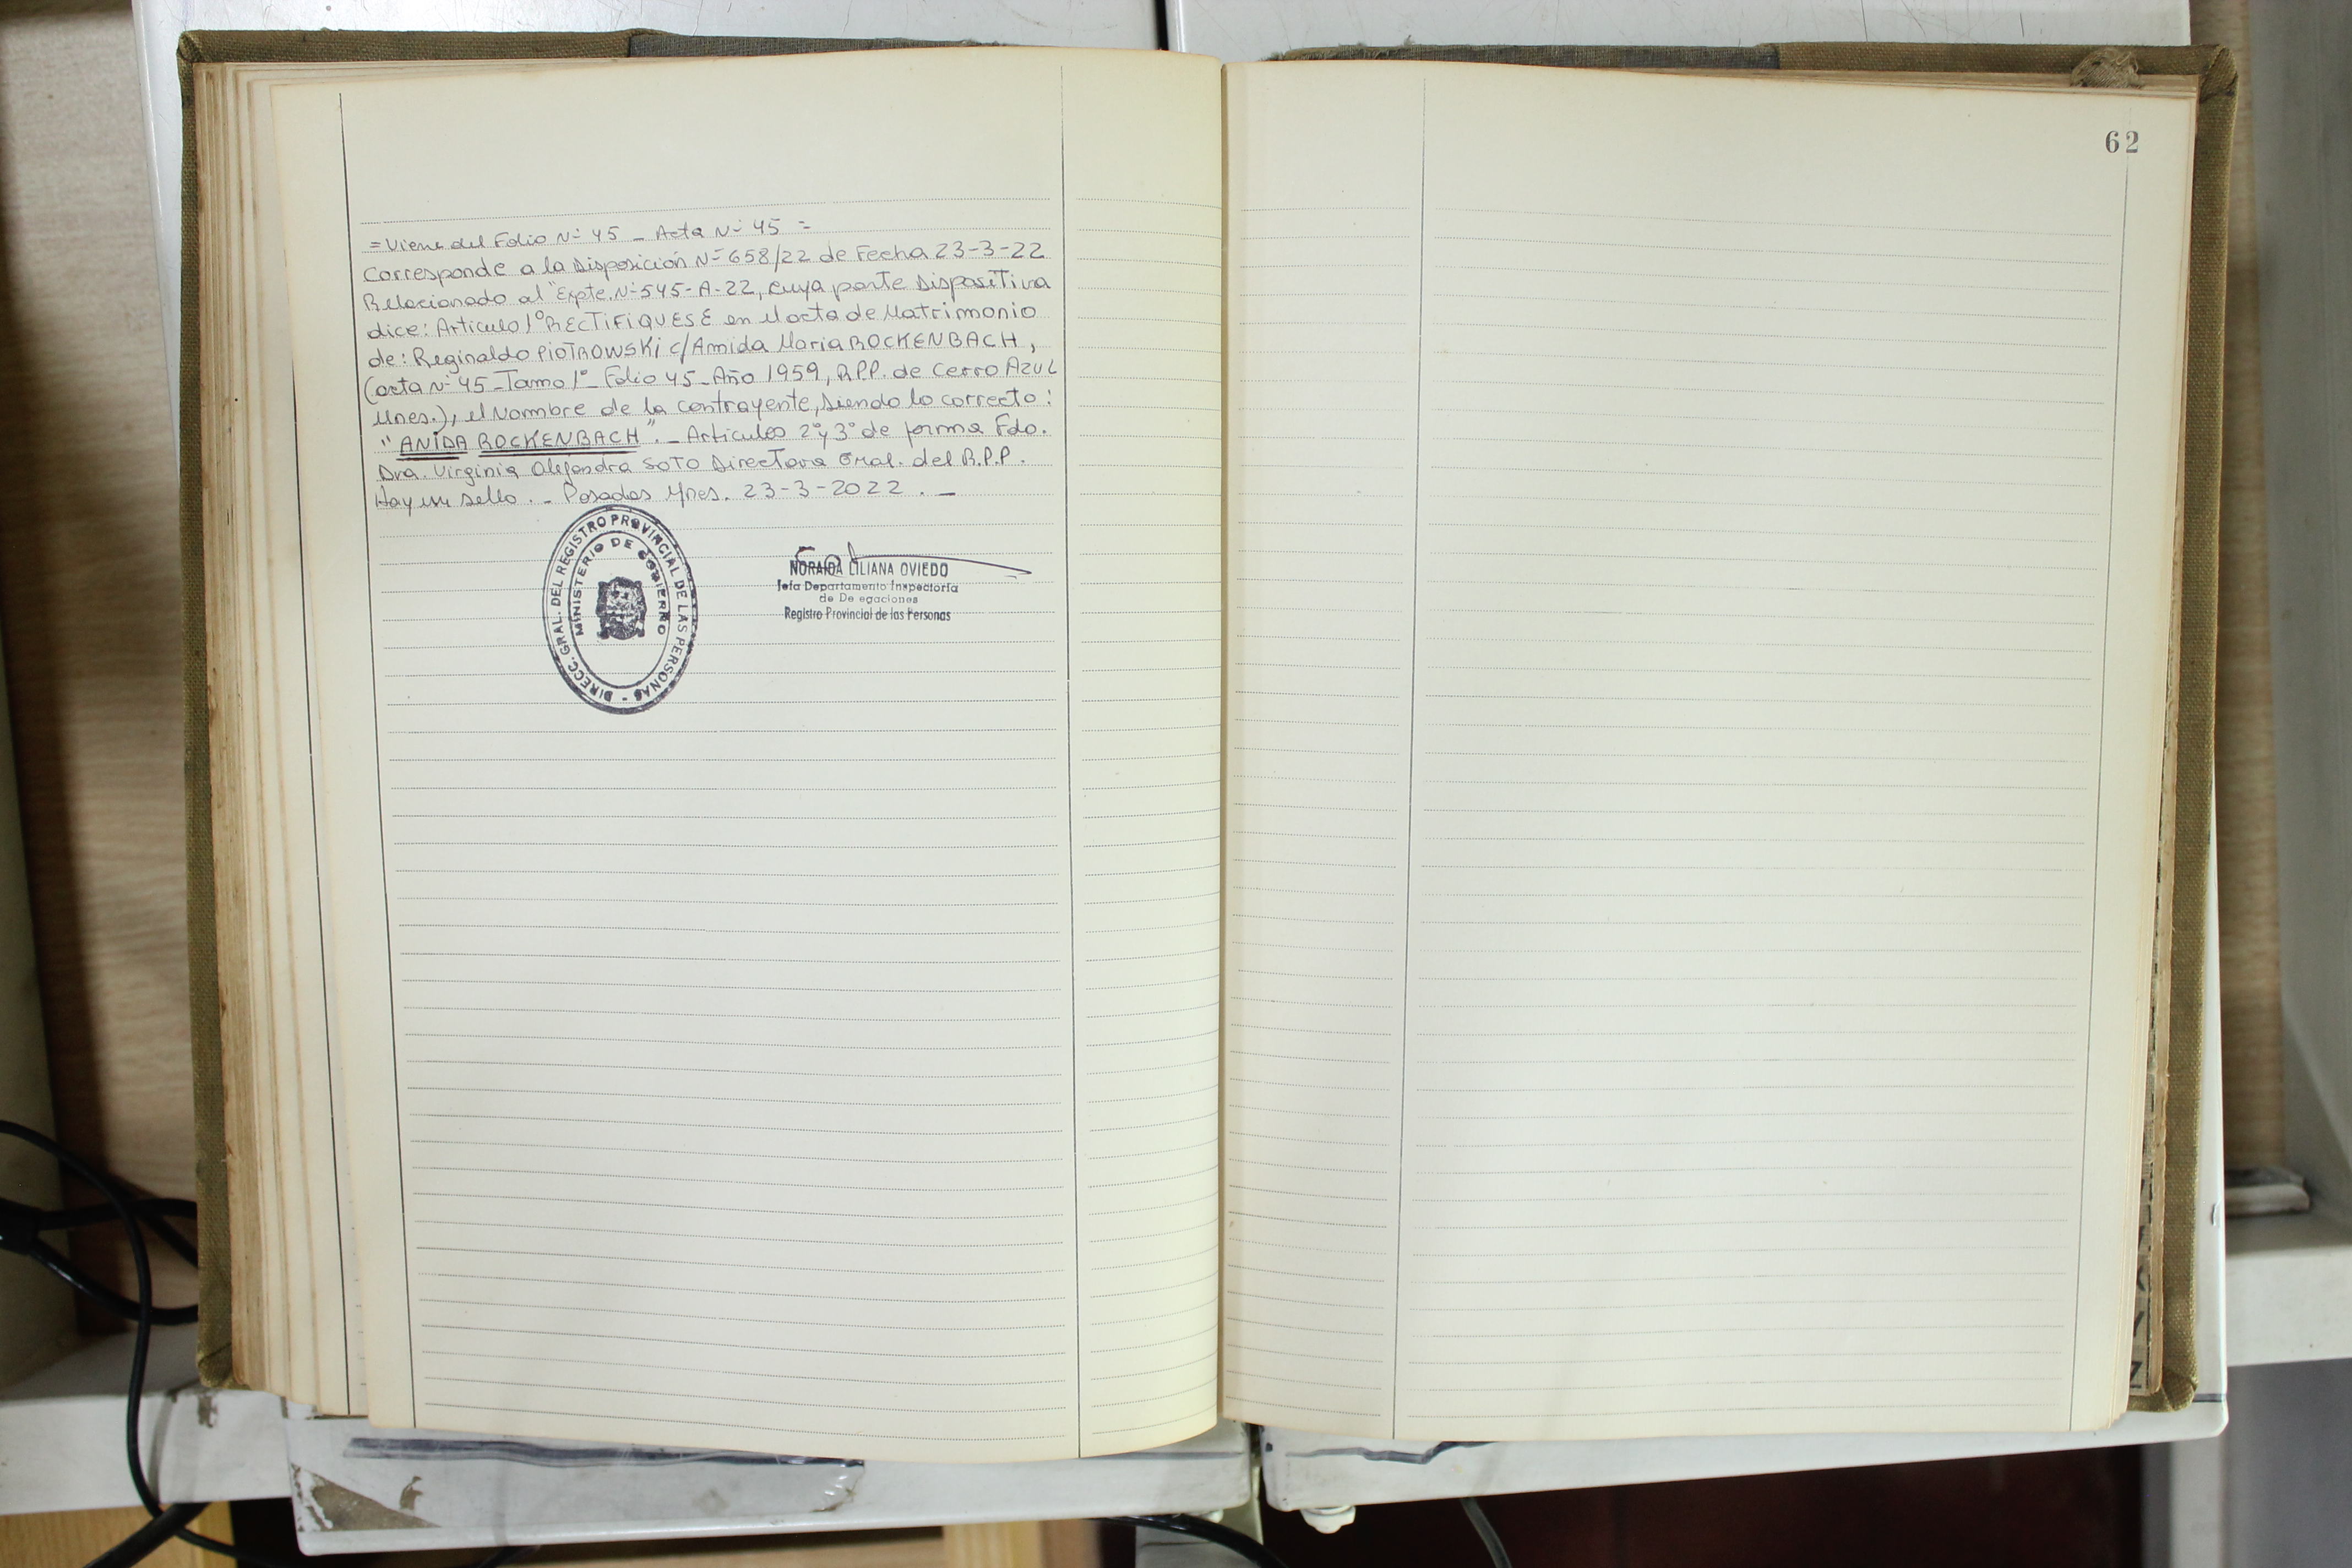 62
= Viene del Folio Nº 45 _ Acta Nº 45 =
Corresponde a la Disposición Nº 658/22 de Fecha 23-3-22
Relacionado al "Expte. Nº 545-A-22, cuya parte Dispositiva
dice: Articulo 1º RECTIFIQUESE en el acta de Matrimonio
de: Reginaldo PIOTROWSKI c/ Amida Maria ROCKENBACH,
(acta Nº 45 _ Tomo 1º _ Folio 45 _ Año 1959, R.P.P. de Cerro Azul
Mnes.), el Nombre de la contrayente, siendo lo correcto:
"ANIDA ROCKENBACH". _ Articulos 2º y 3º de forma Fdo.
Dra. Virginia Alejandra SOTO Directora Gral. del R.P.P.
Hay un sello. _ Posadas Mnes. 23-3-2022. _
DIRECC. GRAL. DEL REGISTRO PROVINCIAL DE LAS PERSONAS -
MINISTERIO DE GOBIERNO
NORAIDA LILIANA OVIEDO
Jefa Departamento Inspectoría
de De egaciones
Registro Provincial de las Personas